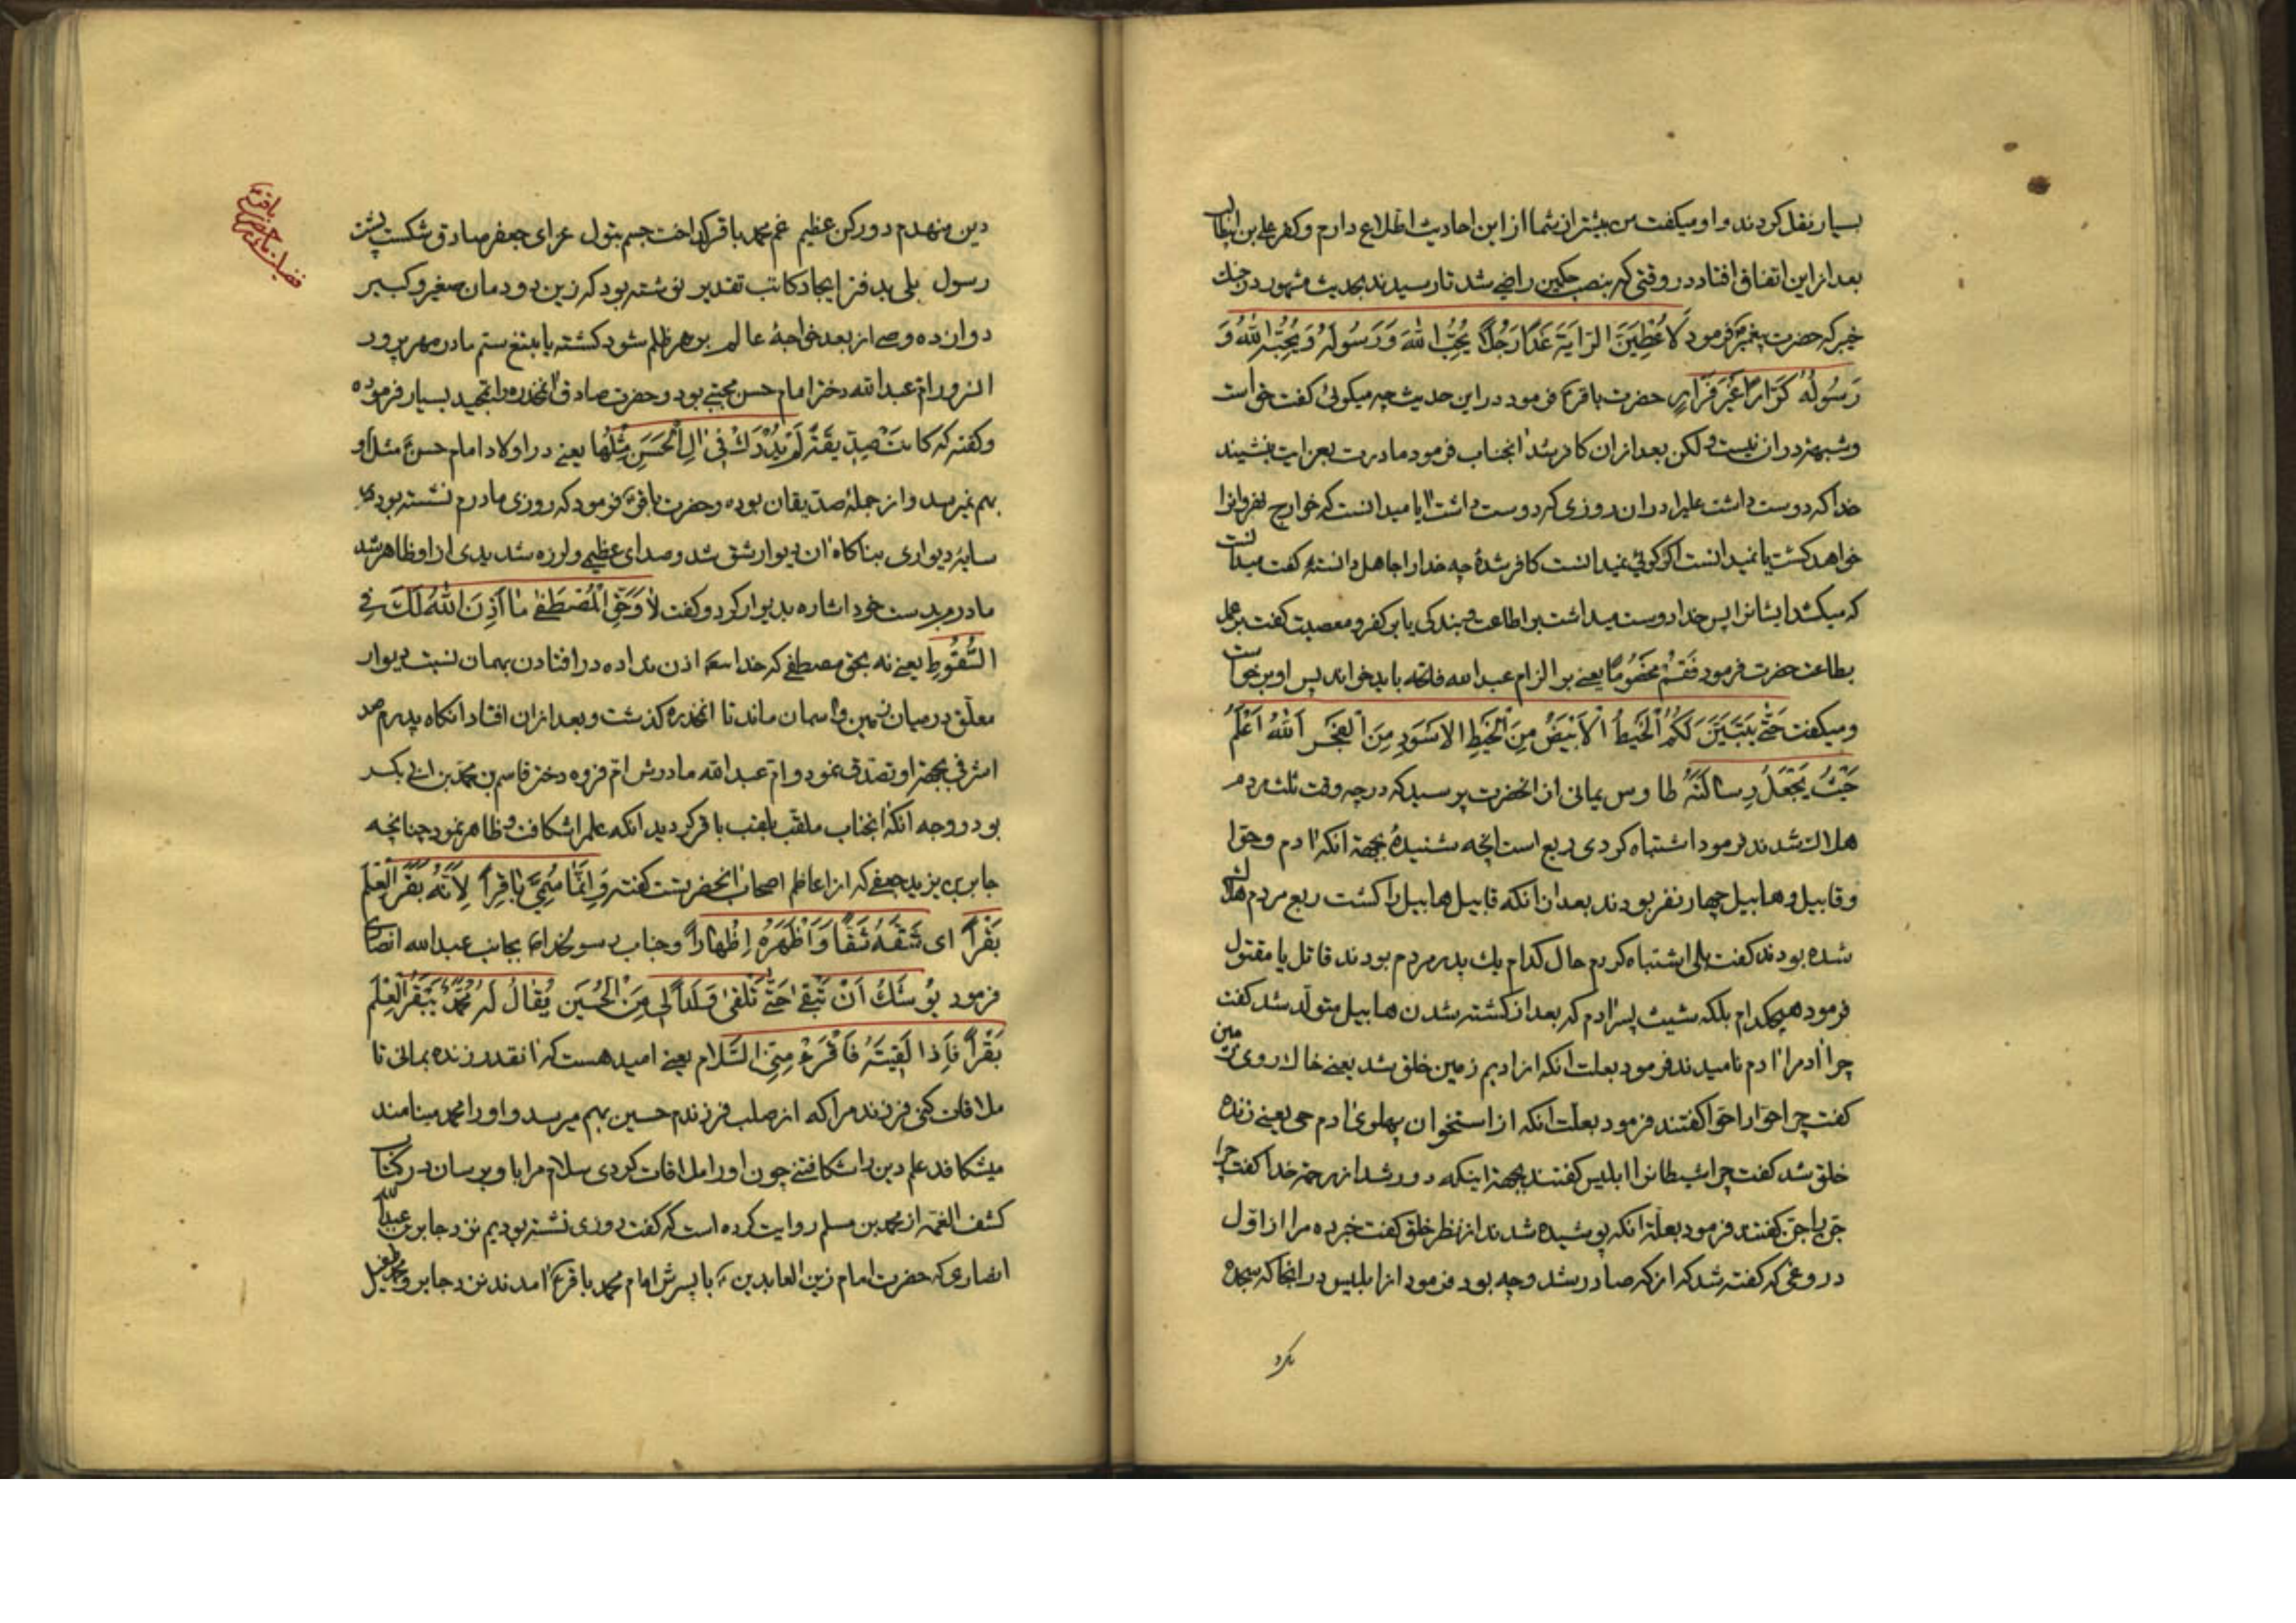 بسیار نقل کردند و او میکفت من بیشتر از شما از این احادیث اطلاع دارم و کفر علی بن ابیطالب
بعد از این اتفاق افتاد در وقتی که بنصب حکمین راضی شد تا رسیدند بحدیث مشهور در جنك
خیبر که حضرت پیغمبر فرمود لَاُعْطِیَنَّ الرّایَةَ غَدًا رَجُلًا یُحِبُّ اللّٰهَ وَرَسُولَهُ وَیُحِبُّهُ اللّٰهُ وَ
رَسُولُهُ کَرّاراً غَیْرَ فَرّارٍ حضرت باقر فرمود در این حدیث چه میکوئی کفت حق است
و شبهه در ان نیست ولکن بعد از ان کافر شد انجناب فرمود مادرت بعزایت بنشیند
خدا که دوست داشت علیرا در ان روزی که دوست داشت ایا میدانست که خوارج نهروانرا
خواهد کشت یا نمیدانست اکر کوئی نمیدانست کافر شدهٔ چه خدا را جاهل دانستهٔ کفت میدانست
که میکشد ایشانرا پس خدا دوست میداشت بر اطاعت و بندکی یا بر کفر و معصیت کفت بر عمل
بطاعت حضرت فرمود فَقُمْ مَخْصُومًا یعنی بر الزام عبد الله فاتحه باید خواند پس او برخواست
و میکفت حَتّٰی یَتَبَیَّنَ لَکُمُ الْخَیْطُ الْاَبْیَضُ مِنَ الْخَیْطِ الاَسْوَدِ مِنَ الْفَجْرِ اَللّٰهُ اَعْلَمُ
حَیْثُ یَجْعَلُ رِسالَتَهُ طاوس یمانی از انحضرت پرسید که در چه وقت ثلث مردم
هلاك شدند فرمود اشتباه کردی ربع است انچه شنیدهٔ بجهة انکه ادم و حوا
و قابیل و هابیل چهار نفر بودند بعد از انکه قابیل هابیل را کشت ربع مردم هلاك
شده بودند کفت بلی اشتباه کردم حال کدام یك پدر مردم بودند قاتل یا مقتول
فرمود هیچکدام بلکه شیث پسر ادم که بعد از کشته شدن هابیل متولّد شد کفت
چرا ادم را ادم نامیدند فرمود بعلت انکه از ادیم زمین خلق شد یعنی خاك روی زمین
کفت چرا حوّا را حوّا کفتند فرمود بعلت انکه از استخوان پهلوی ادم حی یعنی زنده
خلق شد کفت چرا شیطانرا ابلیس کفتند بجهة اینکه دور شد از رحمة خدا کفت چرا
جنّ را جنّ کفتند فرمود بعلة انکه پوشیده شدند از نظر خلق کفت خبر ده مرا از اوّل
دروغی که کفته شد که از که صادر شد و چه بود فرمود از ابلیس در انجا که سجده
نکرد
دین منهدم دو رکن عظیم غم محمد باقر کداخت جسم بتول عزای جعفر صادق شکست پشت
رسول بلی بدفتر ایجاد کاتب تقدیر نوشته بود که زین دودمان صغیر و کبیر
دوازده وصی از بعد خواجهٔ عالم بزهر ظلم شود کشته یا بتیغ ستم مادر مهرپرور
انسرور ام عبد الله دختر امام حسن مجتبی بود و حضرت صادق انمخدره را تمجید بسیار فرموده
و کفته که کانَتْ صِدّیقَةً لَمْ یُدْرَكْ فی الِ الْحَسَنِ مِثْلُها یعنی در اولاد امام حسن مثل او
بهم نمیرسد و از جملهٔ صدّیقان بوده و حضرت باقر فرمود که روزی مادرم نشسته بود در
سایهٔ دیواری بناکاه ان دیوار شق شد و صدای عظیمی و لرزه شدیدی از او ظاهر شد
مادرم بدست خود اشاره بدیوار کرد و کفت لا وَحَقِّ الْمُصْطَفٰی ما اَذِنَ اللّٰهُ لَكَ فِی
السُّقُوطِ یعنی نه بحق مصطفی که خدا اذن نداده در افتادن بهمان نسبت دیوار
معلّق در میان زمین و اسمان ماند تا انمخدره کذشت و بعد از ان افتاد انکاه پدرم صد
اشرفی بجهة او تصدق نمود و ام عبد الله مادرش ام فروه دختر قاسم بن محمد بن ابی بکر
بود و وجه انکه انجناب ملقّب بلقب باقر کردید انکه علم را شکافت و ظاهر نمود چنانچه
جابر بن یزید جعفی که از اعاظم اصحاب انحضرتست کفته وَاِنَّما سُمِّیَ باقِراً لِاَنَّهُ بَقَرَ الْعِلْمَ
بَقْراً ای شَقَّهُ شَقًّا وَاَظْهَرَهُ اِظْهاراً و جناب رسولخدا بجابر بن عبد الله انصاری
فرمود یُوشَكُ اَنْ تَبْقٰی حَتّٰی تَلْقٰی وَلَداً لی مِنَ الْحُسَیْنِ یُقالُ لَهُ مُحَمَّدٌ یَبْقَرُ الْعِلْمَ
بَقْراً فَاِذا لَقِیتَهُ فَاَقْرِءْهُ مِنِّی السَّلام یعنی امید هست که انقدر زنده بمانی تا
ملاقات کنی فرزند مرا که از صلب فرزندم حسین بهم میرسد و او را محمد مینامند
میشکافد علم دین را شکافتنی چون او را ملاقات کردی سلام مرا باو برسان در کتاب
کشف الغمّه از محمد بن مسلم روایت کرده است که کفت روزی نشسته بودیم نزد جابر بن عبدالله
انصاری که حضرت امام زین العابدین با پسرش امام محمد باقر امدند نزد جابر و